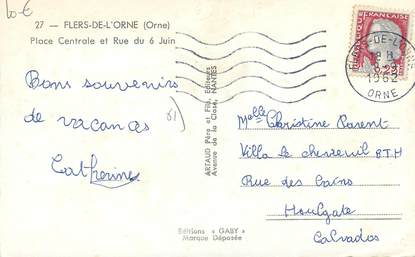 10.€
27 — FLERS-DE-L'ORNE (Orne)
Place Centrale et Rue du 6 Juin
Bons souvenirs
de vacances
Catherine
61)
ARTAUD Père et Fils, Editeurs
Avenue de la Close, NANTES
Editions « GABY »
Marque Déposée
FRANÇAISE
FLERS-DE-L'ORNE
1962
ORNE
Melle Christine Parent
Villa le chevreuil
Rue des Bains
Houlgate
Calvados